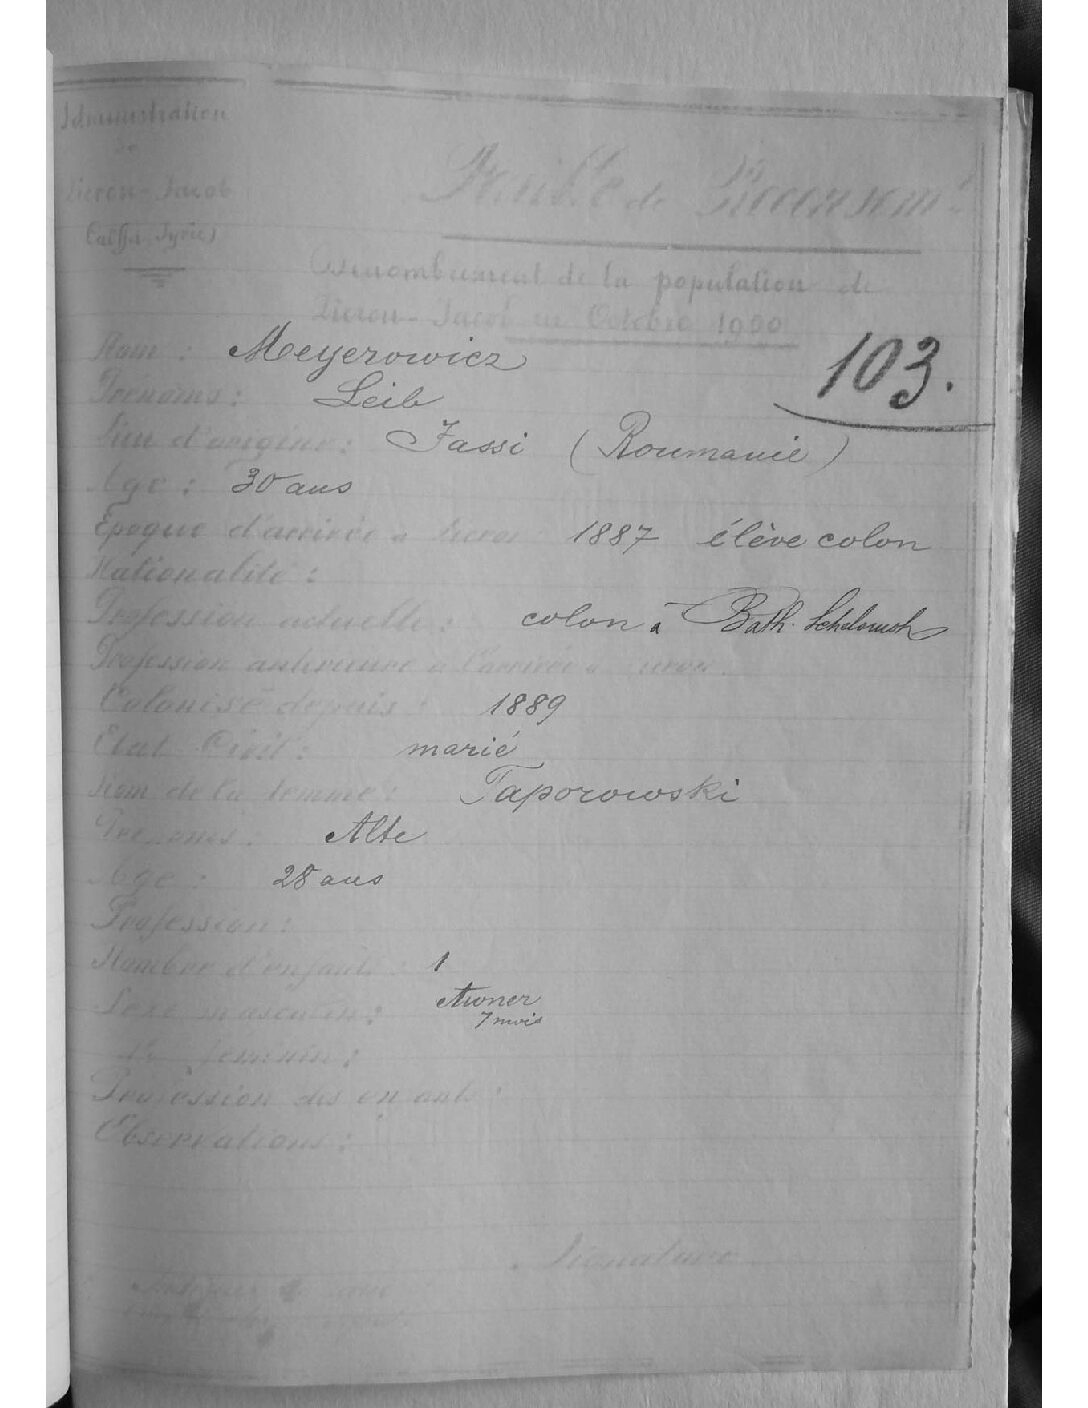 Administration
de
Zicron-Jacob
Caïffa (Syrie)
Feuille de Recensemt
Dénombrement de la population de
Zicron-Jacob en Octobre 1900
103.
Nom : Meyerowicz
Prénoms : Leib
Lieu d'origine : Jassi (Roumanie)
Age : 30 ans
Époque d'arrivée à Zicron 1887 élève colon
Nationalité :
Profession actuelle : colon à Bath. Schelomoh
Profession antérieure à l'arrivée à Zicron
Colonisé depuis : 1889
Etat Civil : marié
Nom de la femme : Taporowski
Prénoms : Alte
Age : 28 ans
Profession :
Nombre d'enfants : 1
Sexe masculin : Awner
7 mois
do féminin :
Profession des enfants :
Observations :
Signature